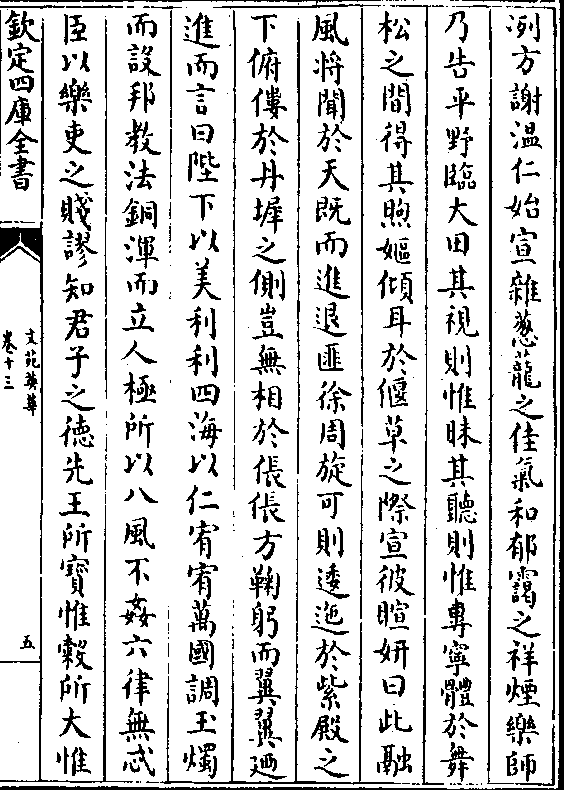 冽方謝温仁始宣雜葱蘢之佳氣和郁靄之祥煙樂師
乃告平野臨大田其視則惟昧其聽則惟專寧體於舞
松之間得其煦嫗傾耳於偃草之際宣彼暄妍曰此融
風将聞於天既而進退匪徐周旋可則逶迤於紫殿之
下俯僂於丹墀之側豈無相於倀倀方鞠躬而翼翼廼
進而言曰陛下以美利利四海以仁宥宥萬國調玉燭
而設邦教法銅渾而立人極所以八風不姦六律無忒
臣以樂吏之賤謬知君子之徳先王所寳惟糓所大惟
欽定四庫全書
文苑英華
卷十三
五